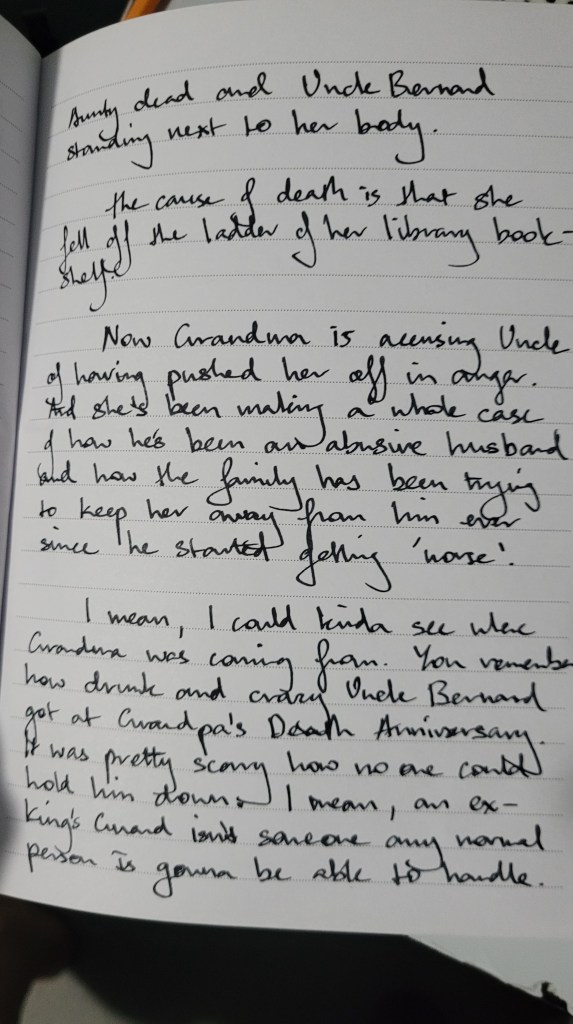 Aunty dead and Uncle Bernard
standing next to her body.
the cause of death is that she
fell off the ladder of her library book-
shelf.
Now Grandma is accusing Uncle
of having pushed her off in anger.
And she's been making a whole case
of how he's been an abusive husband
and how the family has been trying
to keep her away from him ever
since he started getting 'worse'.
I mean, I could kinda see where
Grandma was coming from. You remember
how drunk and crazy Uncle Bernard
got at Grandpa's Death Anniversary.
It was pretty scary how no one could
hold him down. I mean, an ex-
King's Guard isn't someone any normal
person is gonna be able to handle.